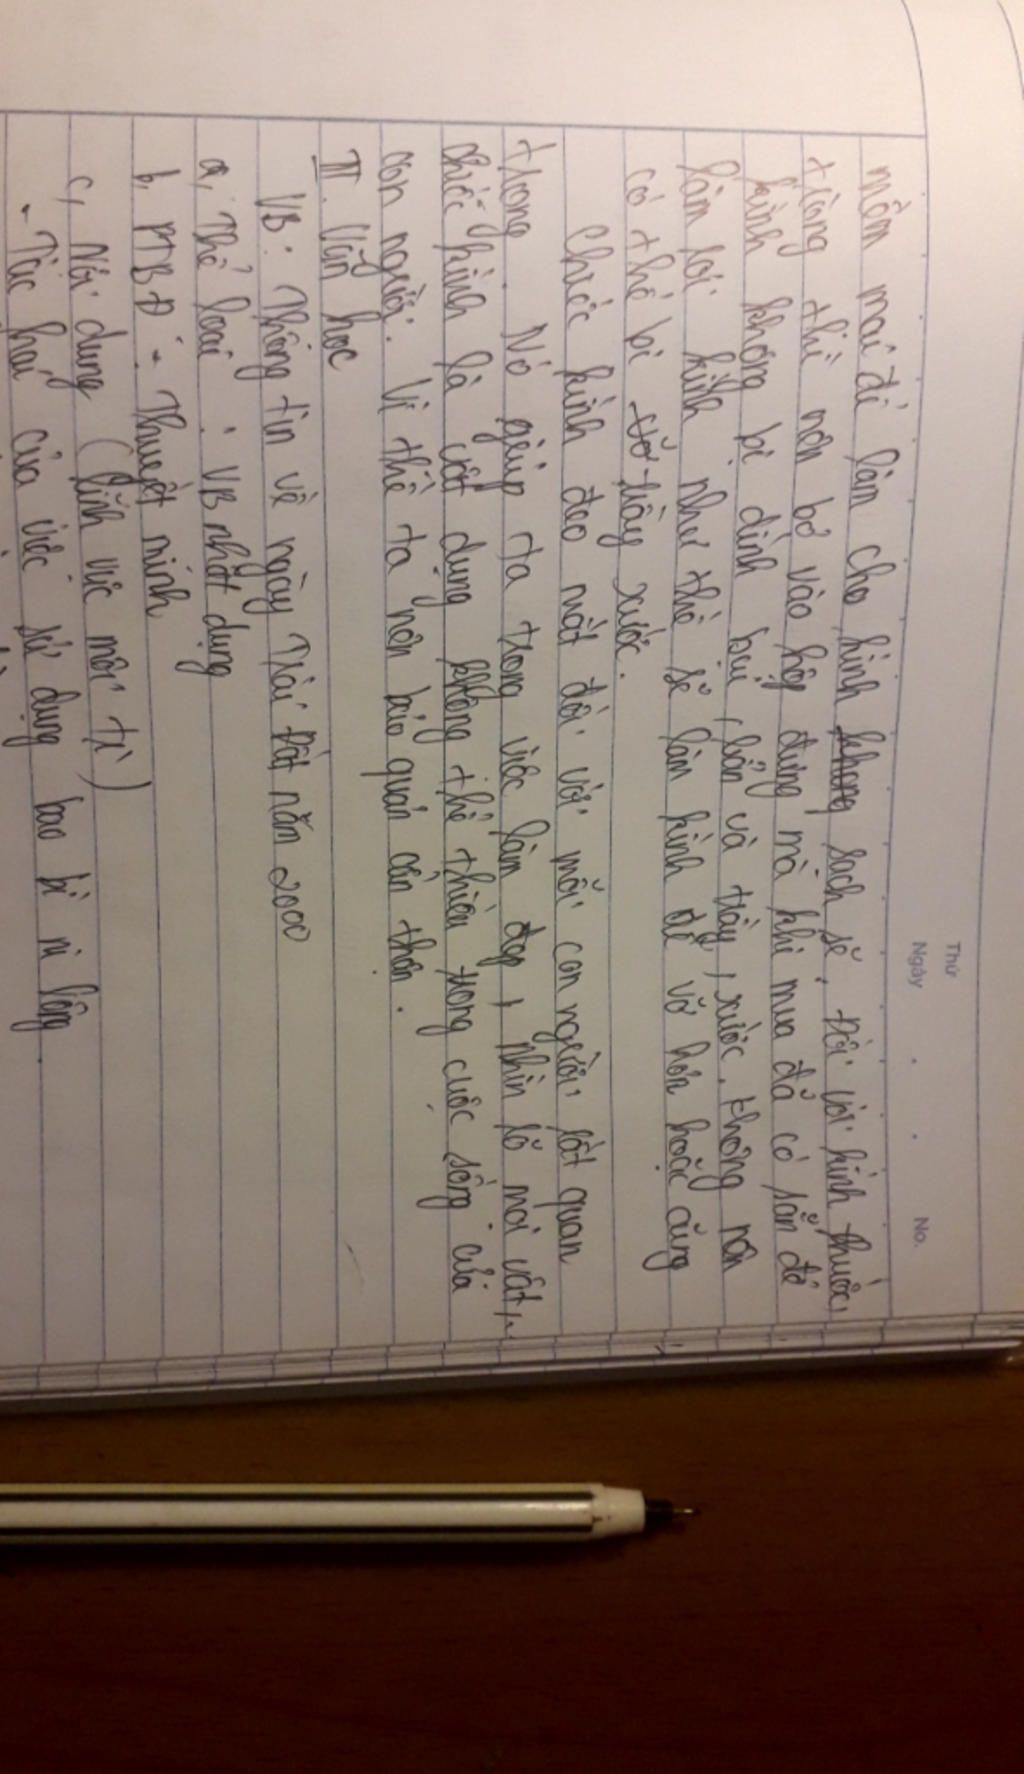 Thứ
Ngày . . No.
mềm mại để làm cho kính khong sạch sẽ. Đối với kính thuốc,
tròng thì nên bỏ vào hộp đựng mà khi mua đã có sẵn để
kính không bị dính bụi, bẩn và trầy, xước. Không nên
làm rơi kính như thế sẽ làm kính dễ vỡ hơn hoặc cũng
có thể bị trầy xước.
Chiếc kính đeo mắt đối với mỗi con người rất quan
trọng. Nó giúp ta trong việc làm đẹp, nhìn rõ mọi vật,...
chiếc kính là vật dụng không thể thiếu trong cuộc sống của
con người. Vì thế ta nên bảo quản cẩn thận.
III. Văn học
VB: Thông tin về ngày Trái Đất năm 2000
a, Thể loại: VB nhật dụng
b, PTBĐ: Thuyết minh
c, Nội dung (lĩnh vực môi tr)
- Tác hại của việc sử dụng bao bì ni lông.